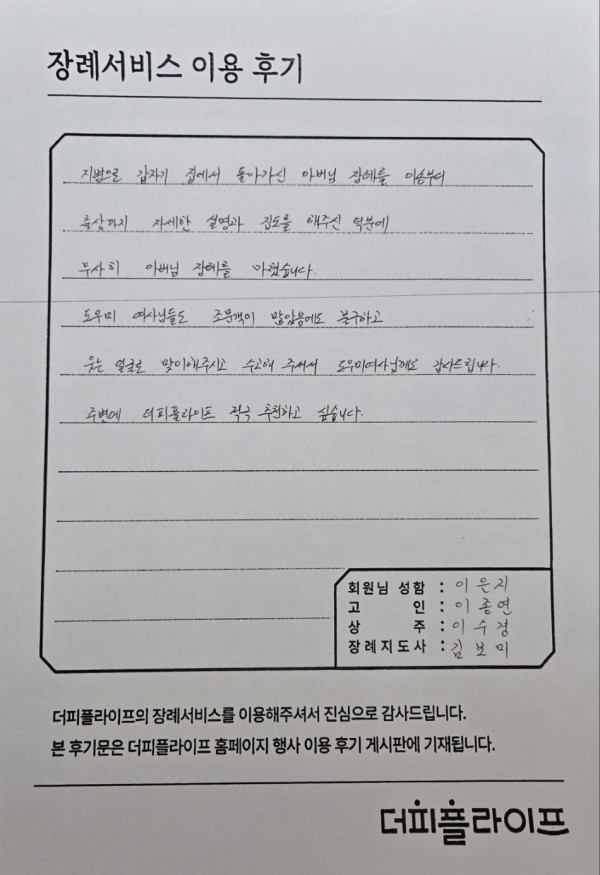 장례서비스 이용 후기
지병으로 갑자기 집에서 돌아가신 아버님 장례를 이송부터
출상까지 자세한 설명과 집도를 해주신 덕분에
무사히 아버님 장례를 마쳤습니다.
도우미 여사님들도 조문객이 많았음에도 불구하고
웃는 얼굴로 맞이해주시고 수고해 주셔서 도우미여사님께도 감사드립니다.
주변에 더피플라이프 적극 추천하고 싶습니다.
회원님 성함 : 이은지
고 인 : 이종연
상 주 : 이수경
장례지도사 : 김보미
더피플라이프의 장례서비스를 이용해주셔서 진심으로 감사드립니다.
본 후기문은 더피플라이프 홈페이지 행사 이용 후기 게시판에 기재됩니다.
더피플라이프